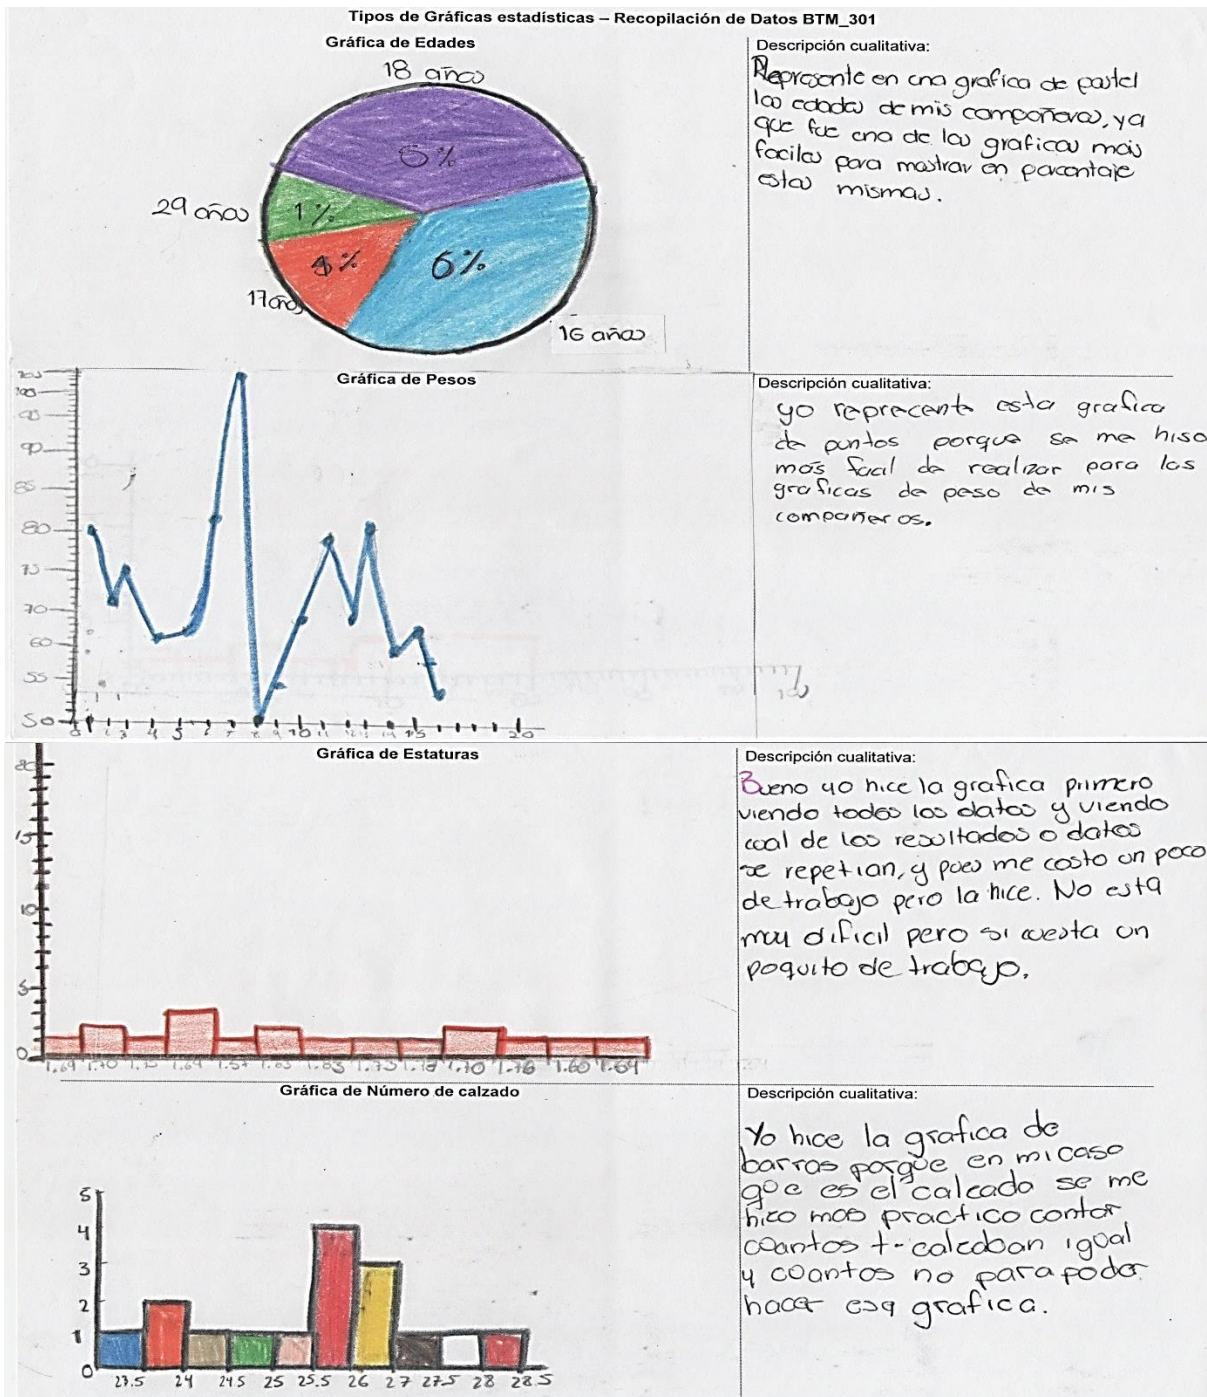 Tipos de Gráficas estadísticas – Recopilación de Datos BTM_301
Gráfica de Edades
18 años
5%
29 años
1%
4%
6%
17 años
16 años
Descripción cualitativa:
Represente en una grafica de pastel
las edades de mis compañeros, ya
que fue una de las graficas mas
faciles para mostrar en porcentaje
estas mismas.
Gráfica de Pesos
90
85
80
75
70
60
55
50
0 2 3 4 5 6 7 8 9 10 11 14 15 20
Descripción cualitativa:
yo reprecente esta grafica
de puntos porque se me hiso
mas facil de realizar para las
graficas de peso de mis
compañeros.
Gráfica de Estaturas
20
15
10
5
0
1.69 1.70 1.64 1.57 1.73 1.70 1.76 1.60 1.64
Descripción cualitativa:
Bueno yo hice la grafica primero
viendo todos los datos y viendo
cual de los resultados o datos
se repetian, y pues me costo un poco
de trabajo pero la hice. No esta
muy dificil pero si cuesta un
poquito de trabajo.
Gráfica de Número de calzado
5
4
3
2
1
0
23.5 24 24.5 25 25.5 26 27 27.5 28 28.5
Descripción cualitativa:
Yo hice la grafica de
barras porque en mi caso
que es el calzado se me
hizo mas practico contar
cuantos calzaban igual
y cuantos no para poder
hacer esa grafica.